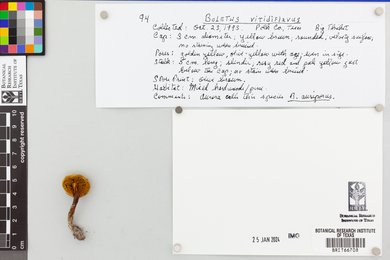 94 BOLETUS viridiflavus
Collected: Oct. 23, 1993 Polk Co., Texas By Thibert
Cap: 3 cm diameter, yellow brown, rounded, velvety surface,
no staining when bruised.
Pores: golden yellow, olive-yellow with age,
Stalk: 5 cm long; slender; rosy red and pale yellow just
below the cap; no stain when bruised.
Spore Print: olive brown.
Habitat: Mixed hardwood/pine
Comments: Aurora calls this species B. auriporus.
BOTANICAL RESEARCH
INSTITUTE OF TEXAS
copyright reserved
cm
0 1 2 3 4 5 6 7 8 9 10
BRIT
BOTANICAL RESEARCH
INSTITUTE OF TEXAS
25 JAN 2024
IMG
BOTANICAL RESEARCH INSTITUTE
OF TEXAS
BRIT66708